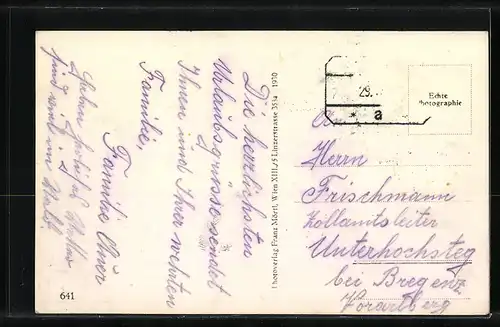 Die herzlichsten
Urlaubsgrüsse sendet
Ihnen und Ihrer werten
Familie,
Familie
sind
Photoverlag Franz Mörtl, Wien XIII./5 Linzerstrasse 1930
29.
* a
Echte
Photographie
An
Herrn
Frischmann
Zollamtsleiter
Unterhochsteg
bei Bregenz
Vorarlberg
641